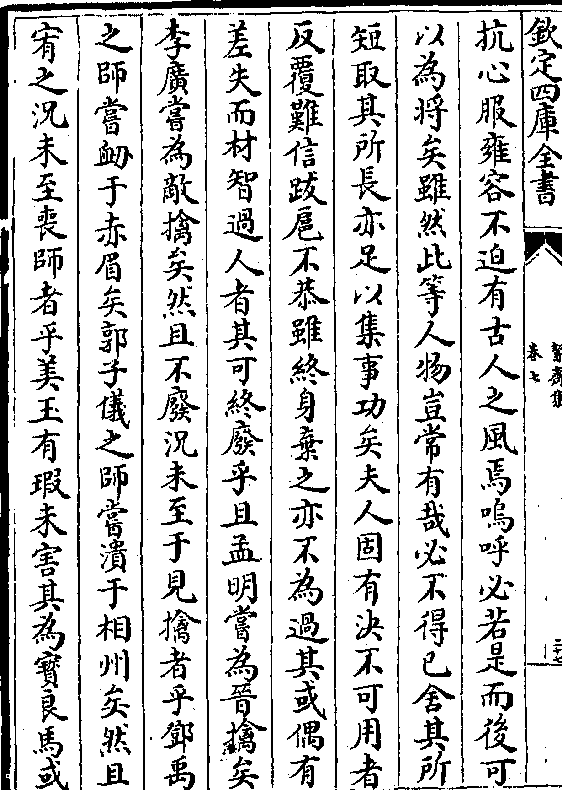 欽定四庫全書
絜齋集
卷七
二十七
抗心服雍容不迫有古人之風焉嗚呼必若是而後可
以為将矣雖然此等人物豈常有哉必不得已舍其所
短取其所長亦足以集事功矣夫人固有決不可用者
反覆難信跋扈不恭雖終身棄之亦不為過其或偶有
差失而材智過人者其可終廢乎且孟明嘗為晉擒矣
李廣嘗為敵擒矣然且不廢況未至于見擒者乎鄧禹
之師嘗衂于赤眉矣郭子儀之師嘗潰于相州矣然且
宥之況未至喪師者乎美玉有瑕未害其為寳良馬或